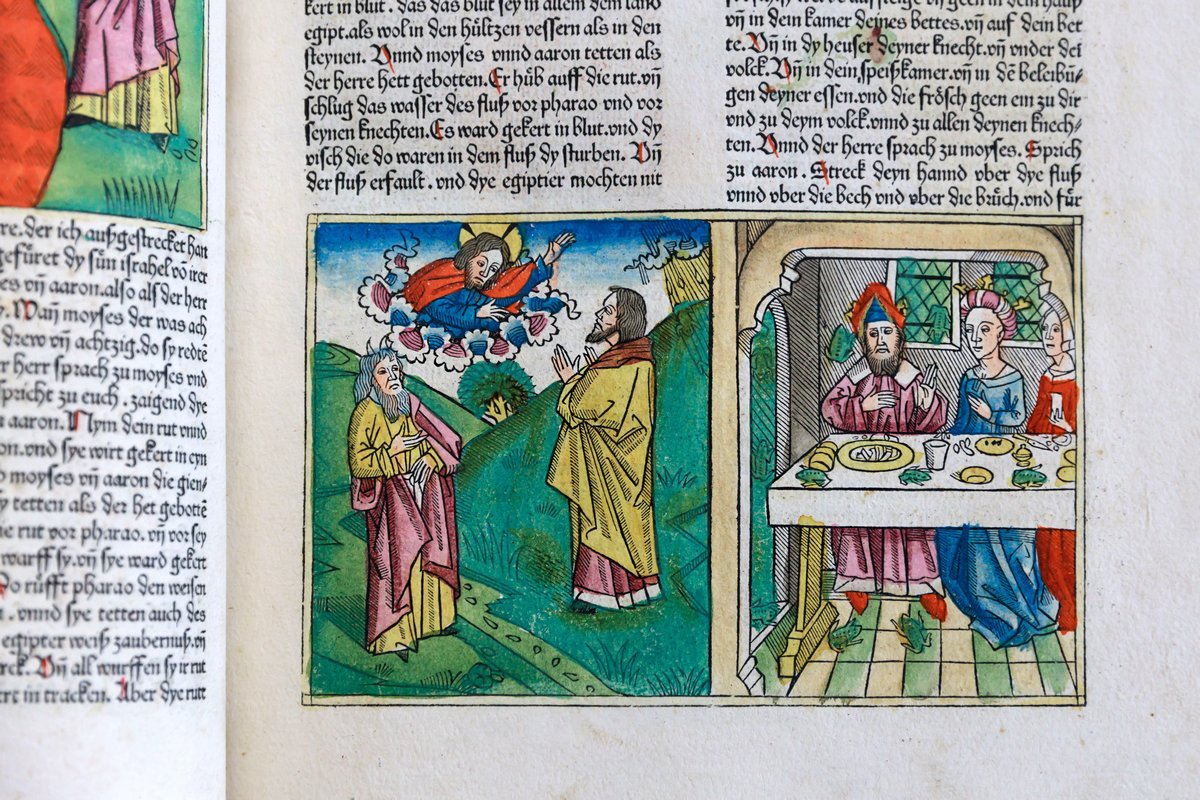 der ich außgestrecket han
gefüret dy sün israhel vō irer
vn̄ aaron.also als der herr
Man̄ moyses der was ach
drew vn̄ achtzig.do sy redtē
herr sprach zu moyses vnd
spricht zu euch . zaigend dye
aaron. Nym dein rut vnnd
vnd sye wirt gekert in eyn
moyses vn̄ aaron die gien/
tetten als der het gebottē
rut vor pharao. vn̄ vor sey
warff sy.vn̄ sye ward gekert
Do rüfft pharao den weisen
vnnd sye tetten auch des
egipter weiß zaubernuß.vn̄
Vn̄ all wurffen sy ir rut
in tracken. Aber dye rutt
kert in blut. das das blut sey in allem dem land
egipt.als wol in den hültzen vessern als in den
steynen. Vnnd moyses vnnd aaron tetten als
der herre hett gebotten. Er hůb auff die rut. vn̄
schlug das wasser des fluß vor pharao vnd vor
seynen knechten. Es ward gekert in blut. vnd dy
visch die do waren in dem fluß dy sturben. Vn̄
der fluß erfault . vnd dye egiptier mochten nit
vn̄ in dem kamer deines bettes. vn̄ auf dein bet
te. Vn̄ in dy heuser deyner knecht. vn̄ vnder dei
volck. Vn̄ in dein speißkamer. vn̄ in dē beleibū/
gen deyner essen. vnd die frösch geen ein zu dir
vnd zu deym volck. vnnd zu allen deynen knech/
ten. Vnnd der herre sprach zu moyses. Sprich
zu aaron. Streck deyn hannd vber dye fluß
vnnd vber die bech vnd vber die brüch. vnd für